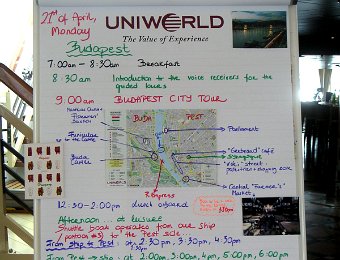 21st of April,
Monday
UNIWORLD
The Value of Experience
Budapest
7:00am - 8:30am Breakfast
8:30am Introduction to the voice receivers for the
guided tours
9:00am BUDAPEST CITY TOUR
Matthias Church
Fishermen'
Bastion
BUDA PEST
Funicular
to the Castle
Parliament
"Gerbeaud" café
Synagogue
"Váci" street
Buda
Castle
Central "Farmer's"
Market
R. Express
12:30 - 2:00pm Lunch onboard
Afternoon... at leisure
Shuttle boat operates from our ship
to the Pest side...
From Ship to Pest: at 2:30pm, 3:30pm, 4:30pm
From Pest → ship: at 2:00pm, 3:00pm, 4pm, 5:00pm, 6:00pm